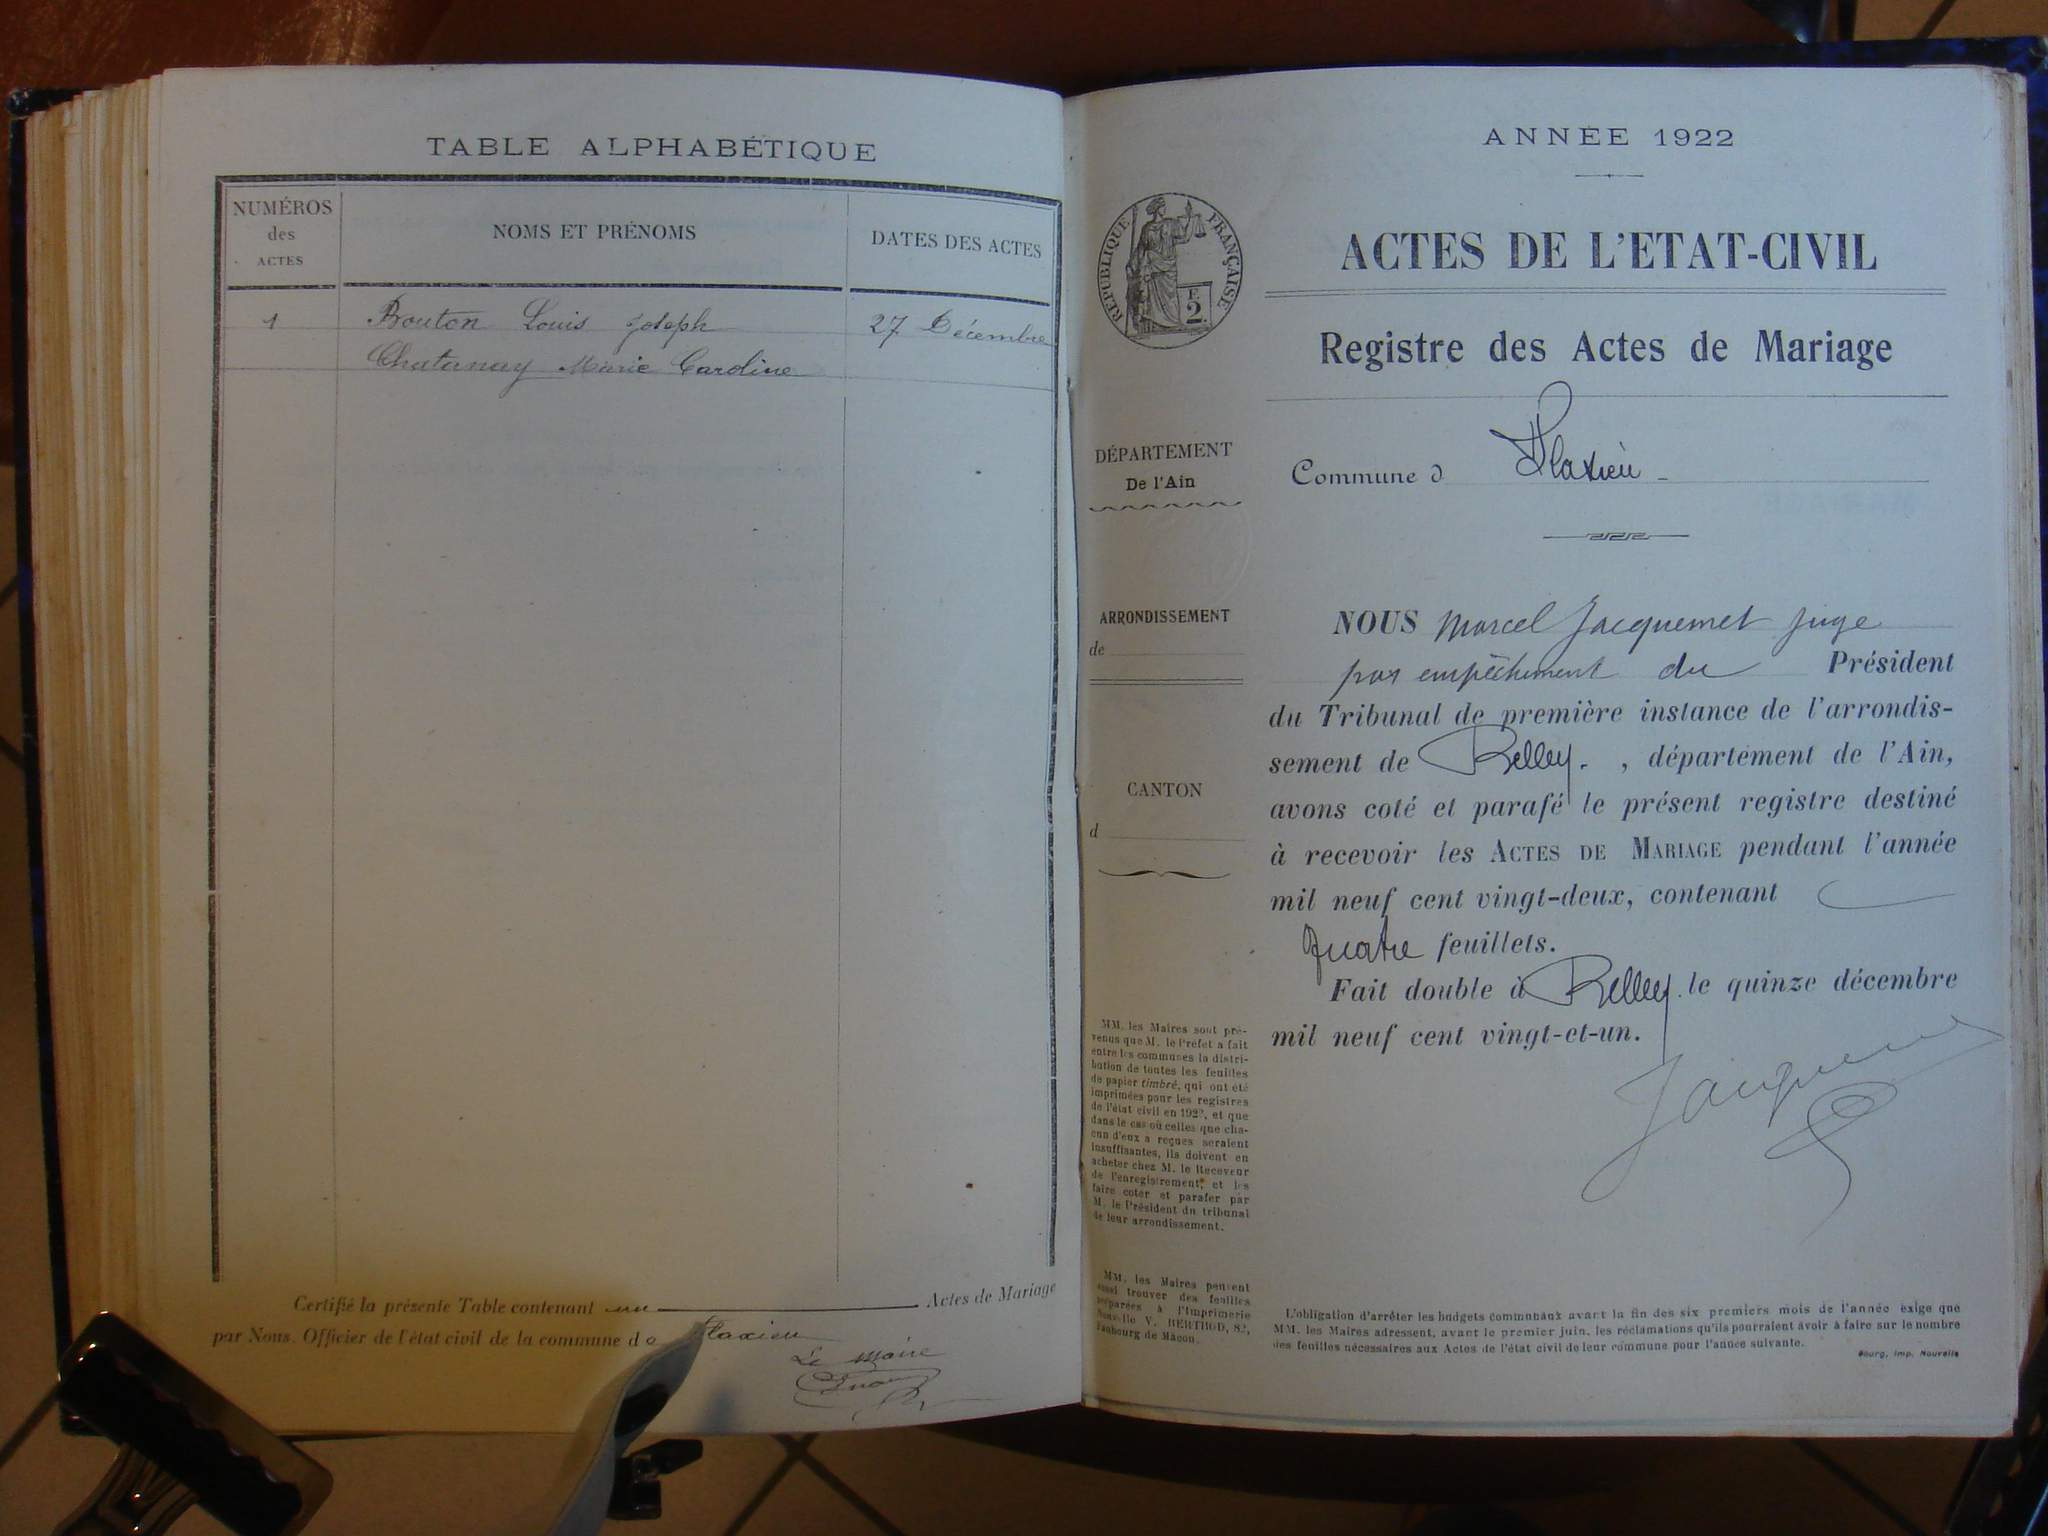 TABLE ALPHABÉTIQUE
NUMÉROS
des
ACTES
NOMS ET PRÉNOMS
DATES DES ACTES
1
Bouton Louis Joseph
27 Décembre
Chatanay Marie Caroline
Certifié la présente Table contenant un Actes de Mariage
par Nous, Officier de l'état civil de la commune de Flaxieu
Le Maire
ANNÉE 1922
RÉPUBLIQUE FRANÇAISE
F.
2.
ACTES DE L'ETAT-CIVIL
Registre des Actes de Mariage
DÉPARTEMENT
De l'Ain
Commune d Flaxieu
ARRONDISSEMENT
de
CANTON
d
NOUS Marcel Jacquemet juge
par empêchement du Président
du Tribunal de première instance de l'arrondis-
sement de Belley. , département de l'Ain,
avons coté et parafé le présent registre destiné
à recevoir les ACTES DE MARIAGE pendant l'année
mil neuf cent vingt-deux, contenant
quatre feuillets.
Fait double à Belley. le quinze décembre
mil neuf cent vingt-et-un.
MM. les Maires sont pré-
venus que M. le Préfet a fait
entre les communes la distri-
bution de toutes les feuilles
de papier timbré, qui ont été
imprimées pour les registres
de l'état civil en 1922, et que
dans le cas où celles que cha-
cun d'eux a reçues seraient
insuffisantes, ils doivent en
acheter chez M. le Receveur
de l'enregistrement, et les
faire coter et parafer par
M. le Président du tribunal
de leur arrondissement.
MM. les Maires peuvent
aussi trouver des feuilles
préparées à l'Imprimerie
Nouvelle V. BERTHOD, 82,
Faubourg de Mâcon.
L'obligation d'arrêter les budgets communaux avant la fin des six premiers mois de l'année exige que
MM. les Maires adressent, avant le premier juin, les réclamations qu'ils pourraient avoir à faire sur le nombre
des feuilles nécessaires aux Actes de l'état civil de leur commune pour l'année suivante.
Bourg, Imp. Nouvelle